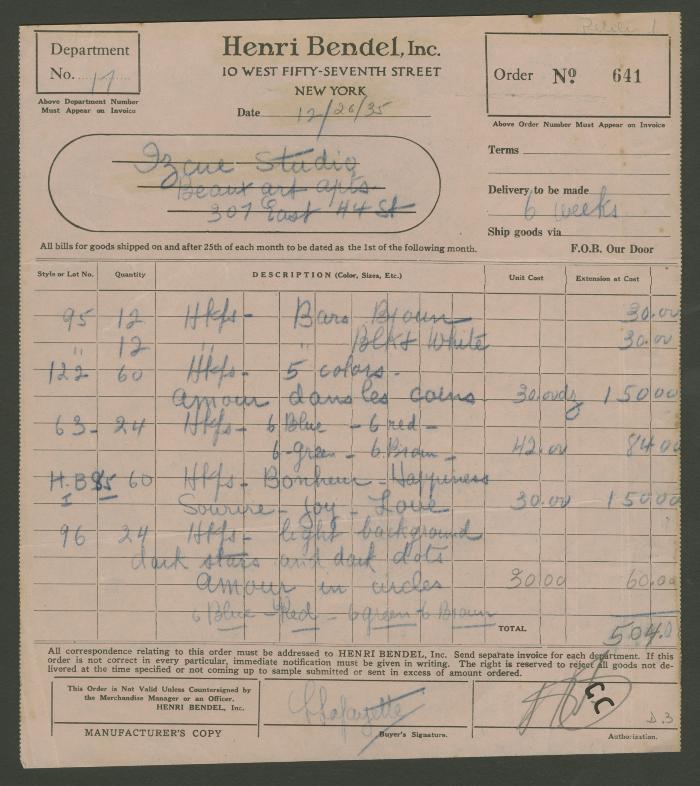 Department
No. 17
Above Department Number
Must Appear on Invoice
Henri Bendel, Inc.
10 WEST FIFTY-SEVENTH STREET
NEW YORK
Date 12/26/35
Order No 641
Above Order Number Must Appear on Invoice
Izcue Studio
Beaux art apts
307 East 44 St
Terms
Delivery to be made
6 weeks
Ship goods via
F.O.B. Our Door
All bills for goods shipped on and after 25th of each month to be dated as the 1st of the following month.
Style or Lot No. Quantity DESCRIPTION (Color, Sizes, Etc.) Unit Cost Extension at Cost
95 12 Hkfs - Bars Brown 30.00
" 12 " " Blk & White 30.00
122 60 Hkfs - 5 colors -
amour dans les coins 30.00 dz 150 00
63 - 24 Hkfs - 6 Blue - 6 red -
6 - green - 6 Brown - 42.00 84 00
H.B 85 60 Hkfs - Bonheur - Happiness
I Sourire - Joy - Love 30.00 150 00
96 24 Hkfs - light background
dark stars and dark dots
amour in circles 30 00 60.00
6 Blue - Red - 6 green 6 Brown
TOTAL 504.0
All correspondence relating to this order must be addressed to HENRI BENDEL, Inc. Send separate invoice for each department. If this
order is not correct in every particular, immediate notification must be given in writing. The right is reserved to reject all goods not de-
livered at the time specified or not coming up to sample submitted or sent in excess of amount ordered.
This Order is Not Valid Unless Countersigned by
the Merchandise Manager or an Officer.
HENRI BENDEL, Inc.
MANUFACTURER'S COPY
Lafayette
Buyer's Signature.
GC
D.3
Authorization.